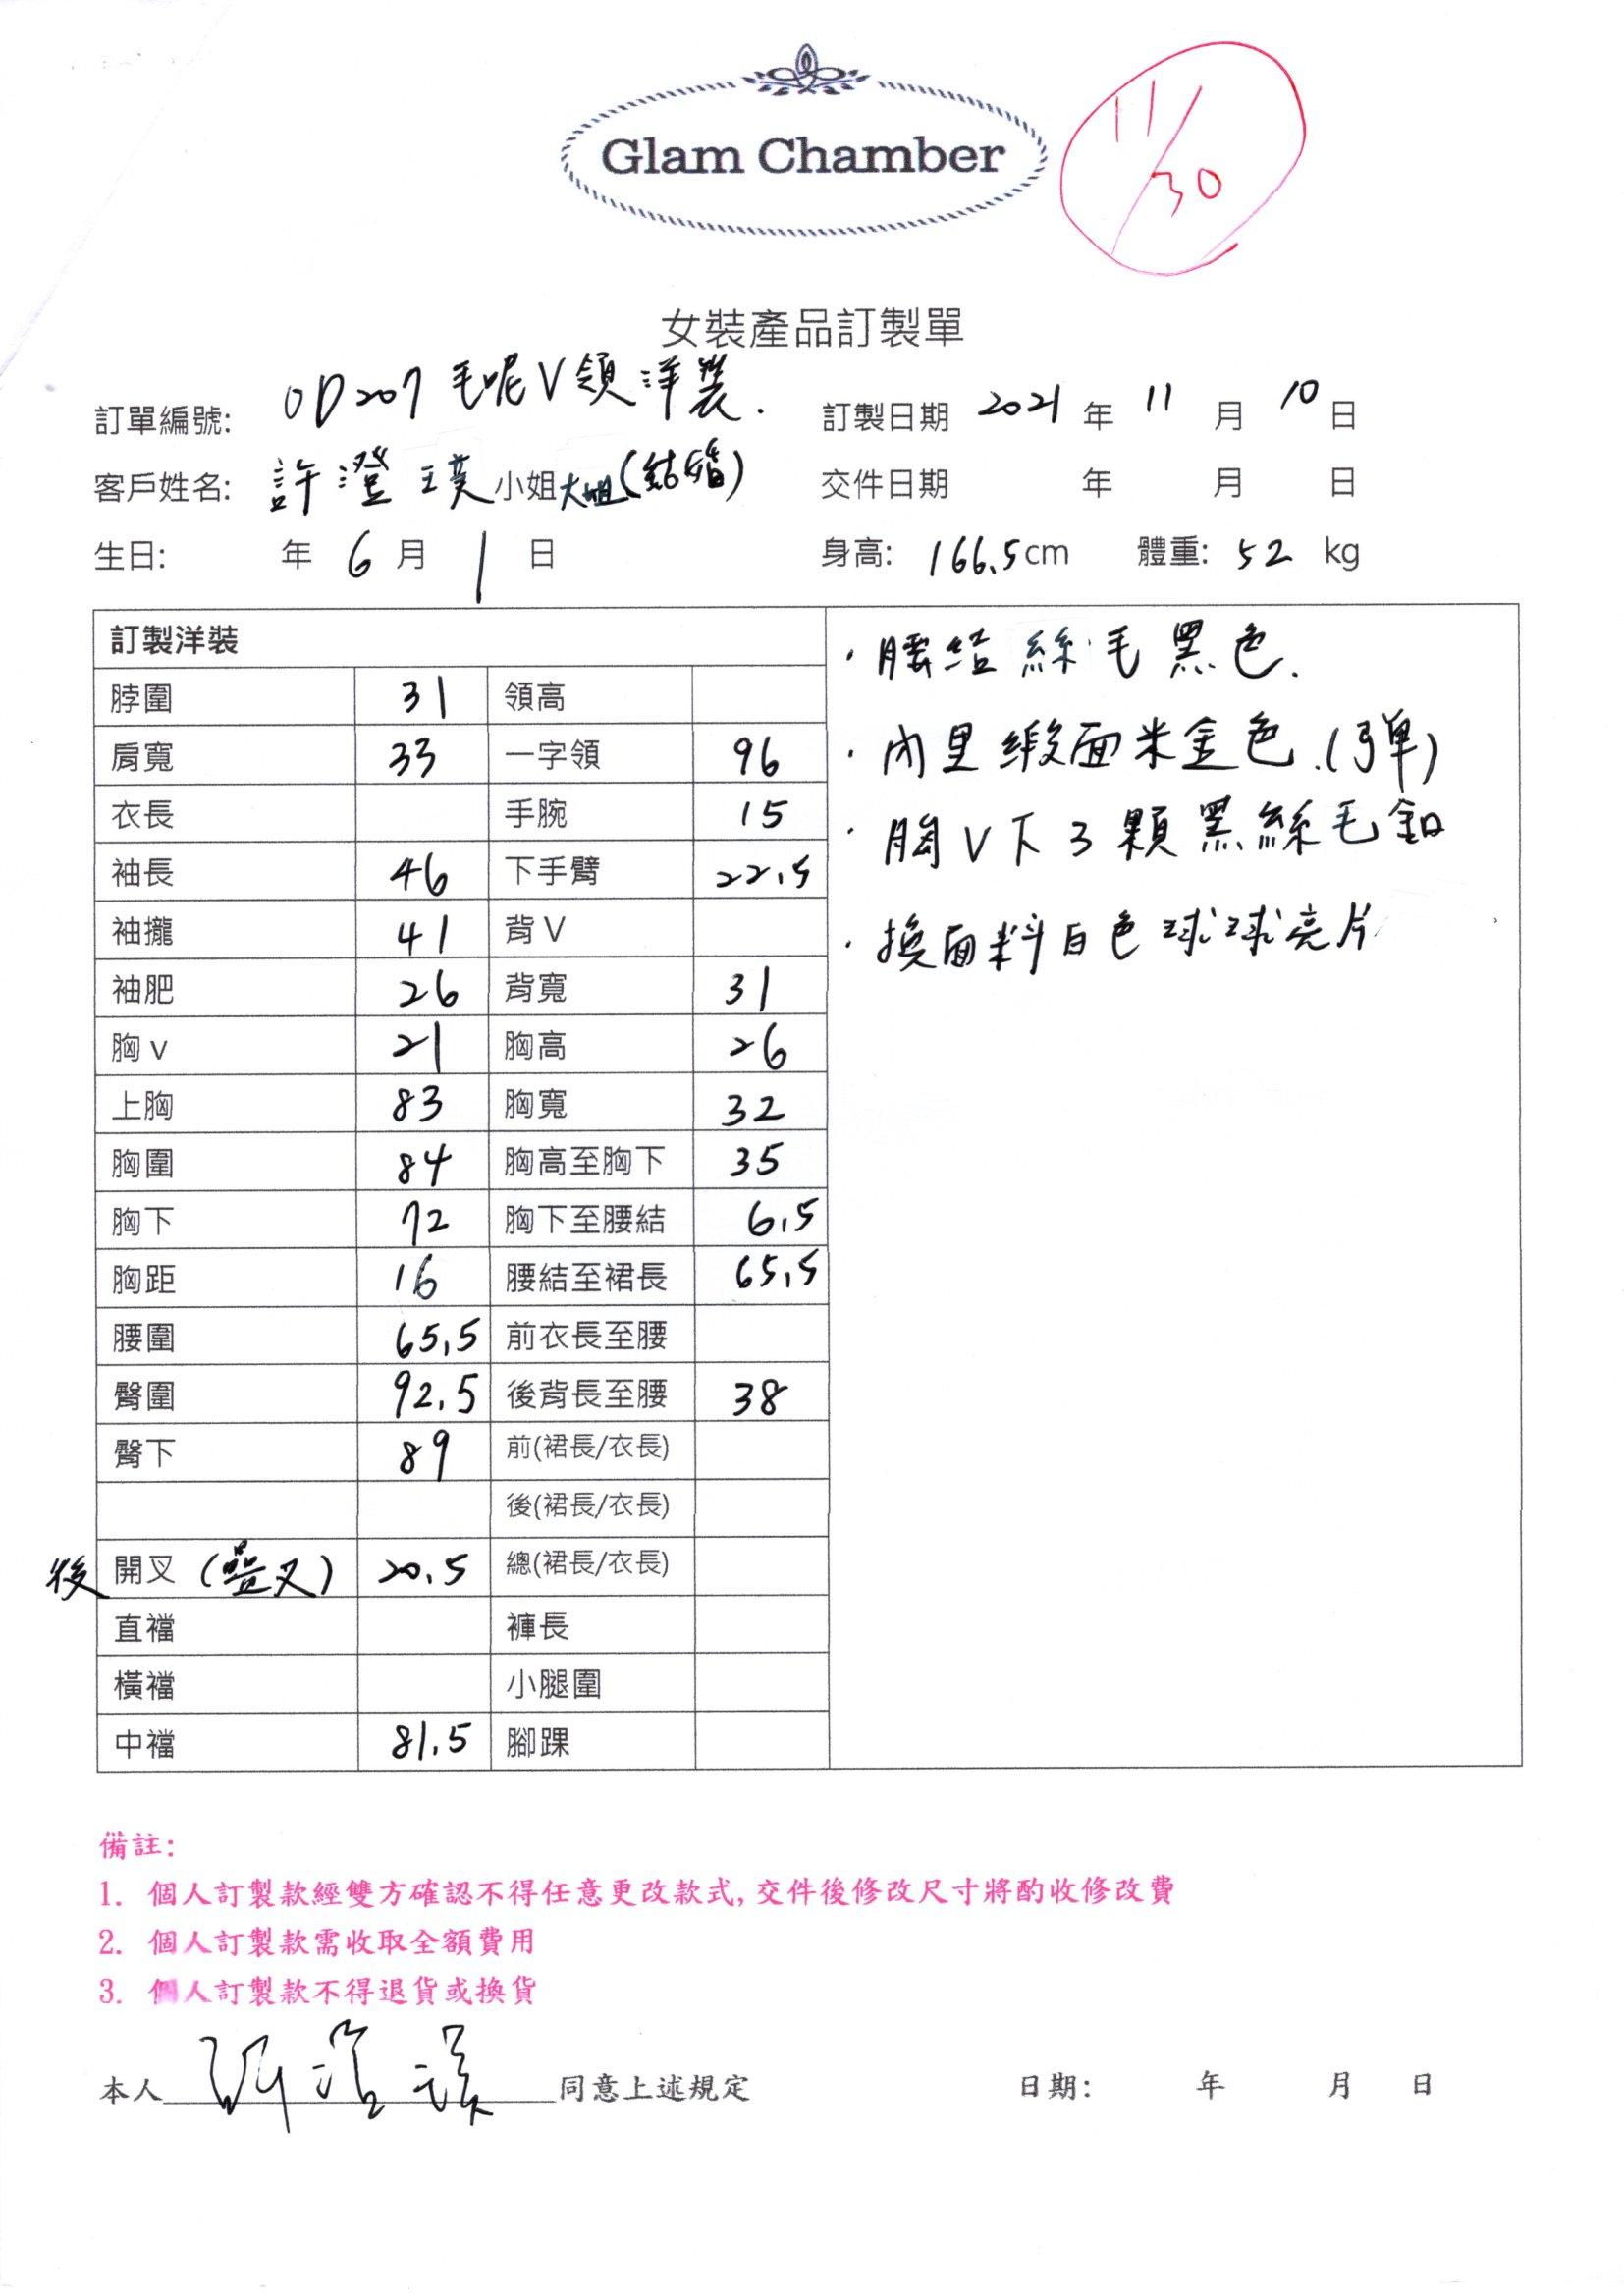 Glam Chamber
11/30
女裝產品訂製單
訂單編號: OD207 毛呢V領洋裝. 訂製日期 2021 年 11 月 10 日
客戶姓名: 許澄璞 小姐 大姐(結婚) 交件日期 年 月 日
生日: 年 6 月 1 日 身高: 166.5 cm 體重: 52 kg
訂製洋裝
脖圍 31 領高
肩寬 33 一字領 96
衣長 手腕 15
袖長 46 下手臂 22.5
袖攏 41 背V
袖肥 26 背寬 31
胸v 21 胸高 26
上胸 83 胸寬 32
胸圍 84 胸高至胸下 35
胸下 72 胸下至腰結 6.5
胸距 16 腰結至裙長 65.5
腰圍 65.5 前衣長至腰
臀圍 92.5 後背長至腰 38
臀下 89 前(裙長/衣長)
後(裙長/衣長)
後 開叉 (疊叉) 20.5 總(裙長/衣長)
直襠 褲長
橫襠 小腿圍
中襠 81.5 腳踝
· 腰结絲毛黑色.
· 內里緞面米金色.(弹)
· 胸V下3顆黑絲毛釦
· 換面料白色球球亮片
備註:
1. 個人訂製款經雙方確認不得任意更改款式, 交件後修改尺寸將酌收修改費
2. 個人訂製款需收取全額費用
3. 個人訂製款不得退貨或換貨
本人 許澄璞 同意上述規定 日期: 年 月 日